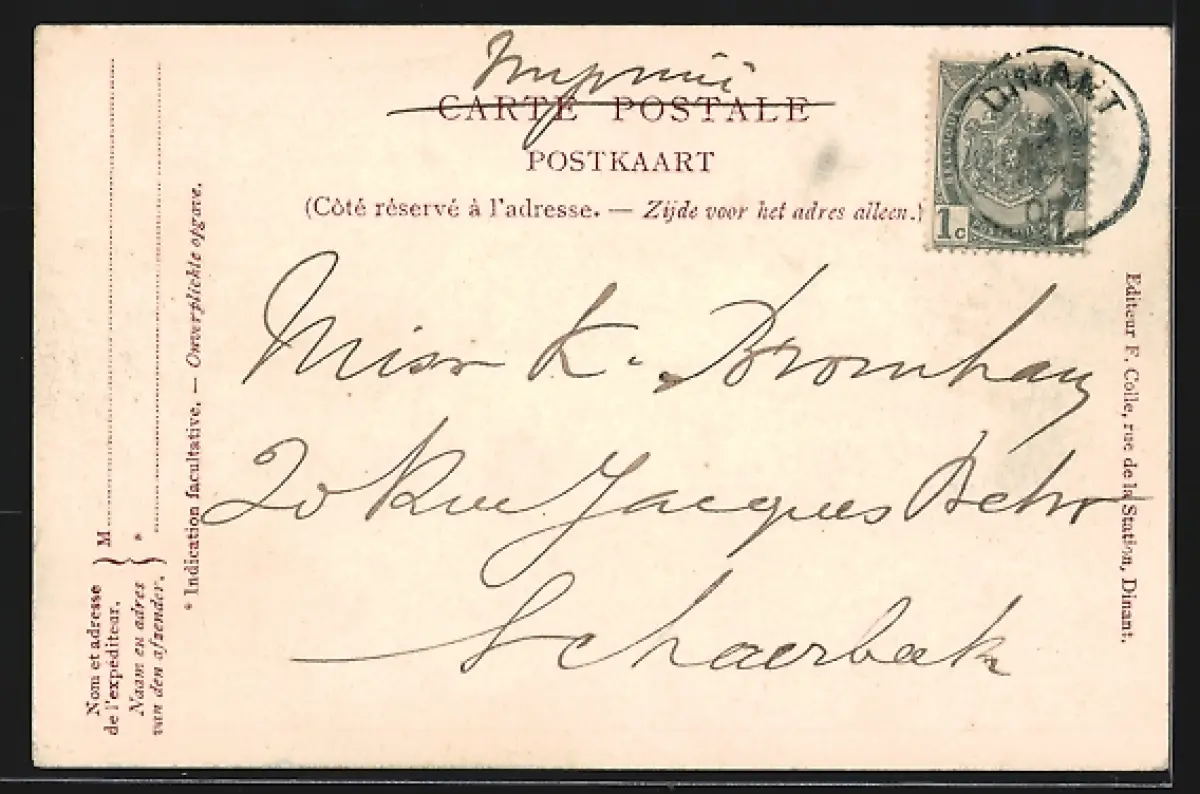 Imprimé
CARTE POSTALE
POSTKAART
(Côté réservé à l'adresse. — Zijde voor het adres alleen.)
DINANT
1c
Miss K. Bromhau
20 Rue Jacques
Schaerbeek
Editeur F. Colle, rue de la Station, Dinant.
Nom et adresse
de l'expéditeur.
Naam en adres
van den afzender.
M
*
* Indication facultative. — Onverplichte opgave.